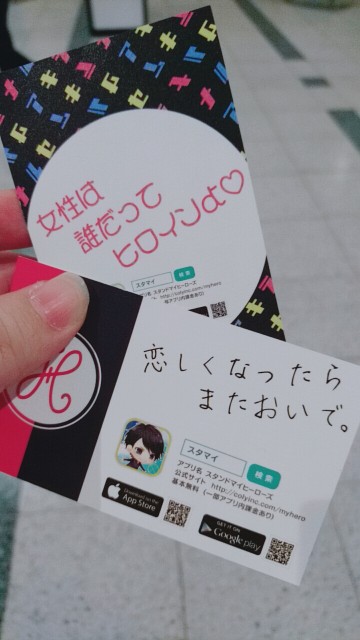 女性は
誰だって
ヒロインよ♡
スタマイ
検索
スタンドマイヒーローズ
http://colyinc.com/myhero
恋しくなったら
またおいで。
スタマイ
検索
アプリ名 スタンドマイヒーローズ
公式サイト http://colyinc.com/myhero
基本無料（一部アプリ内課金あり）
Download on the
App Store
GET IT ON
Google play